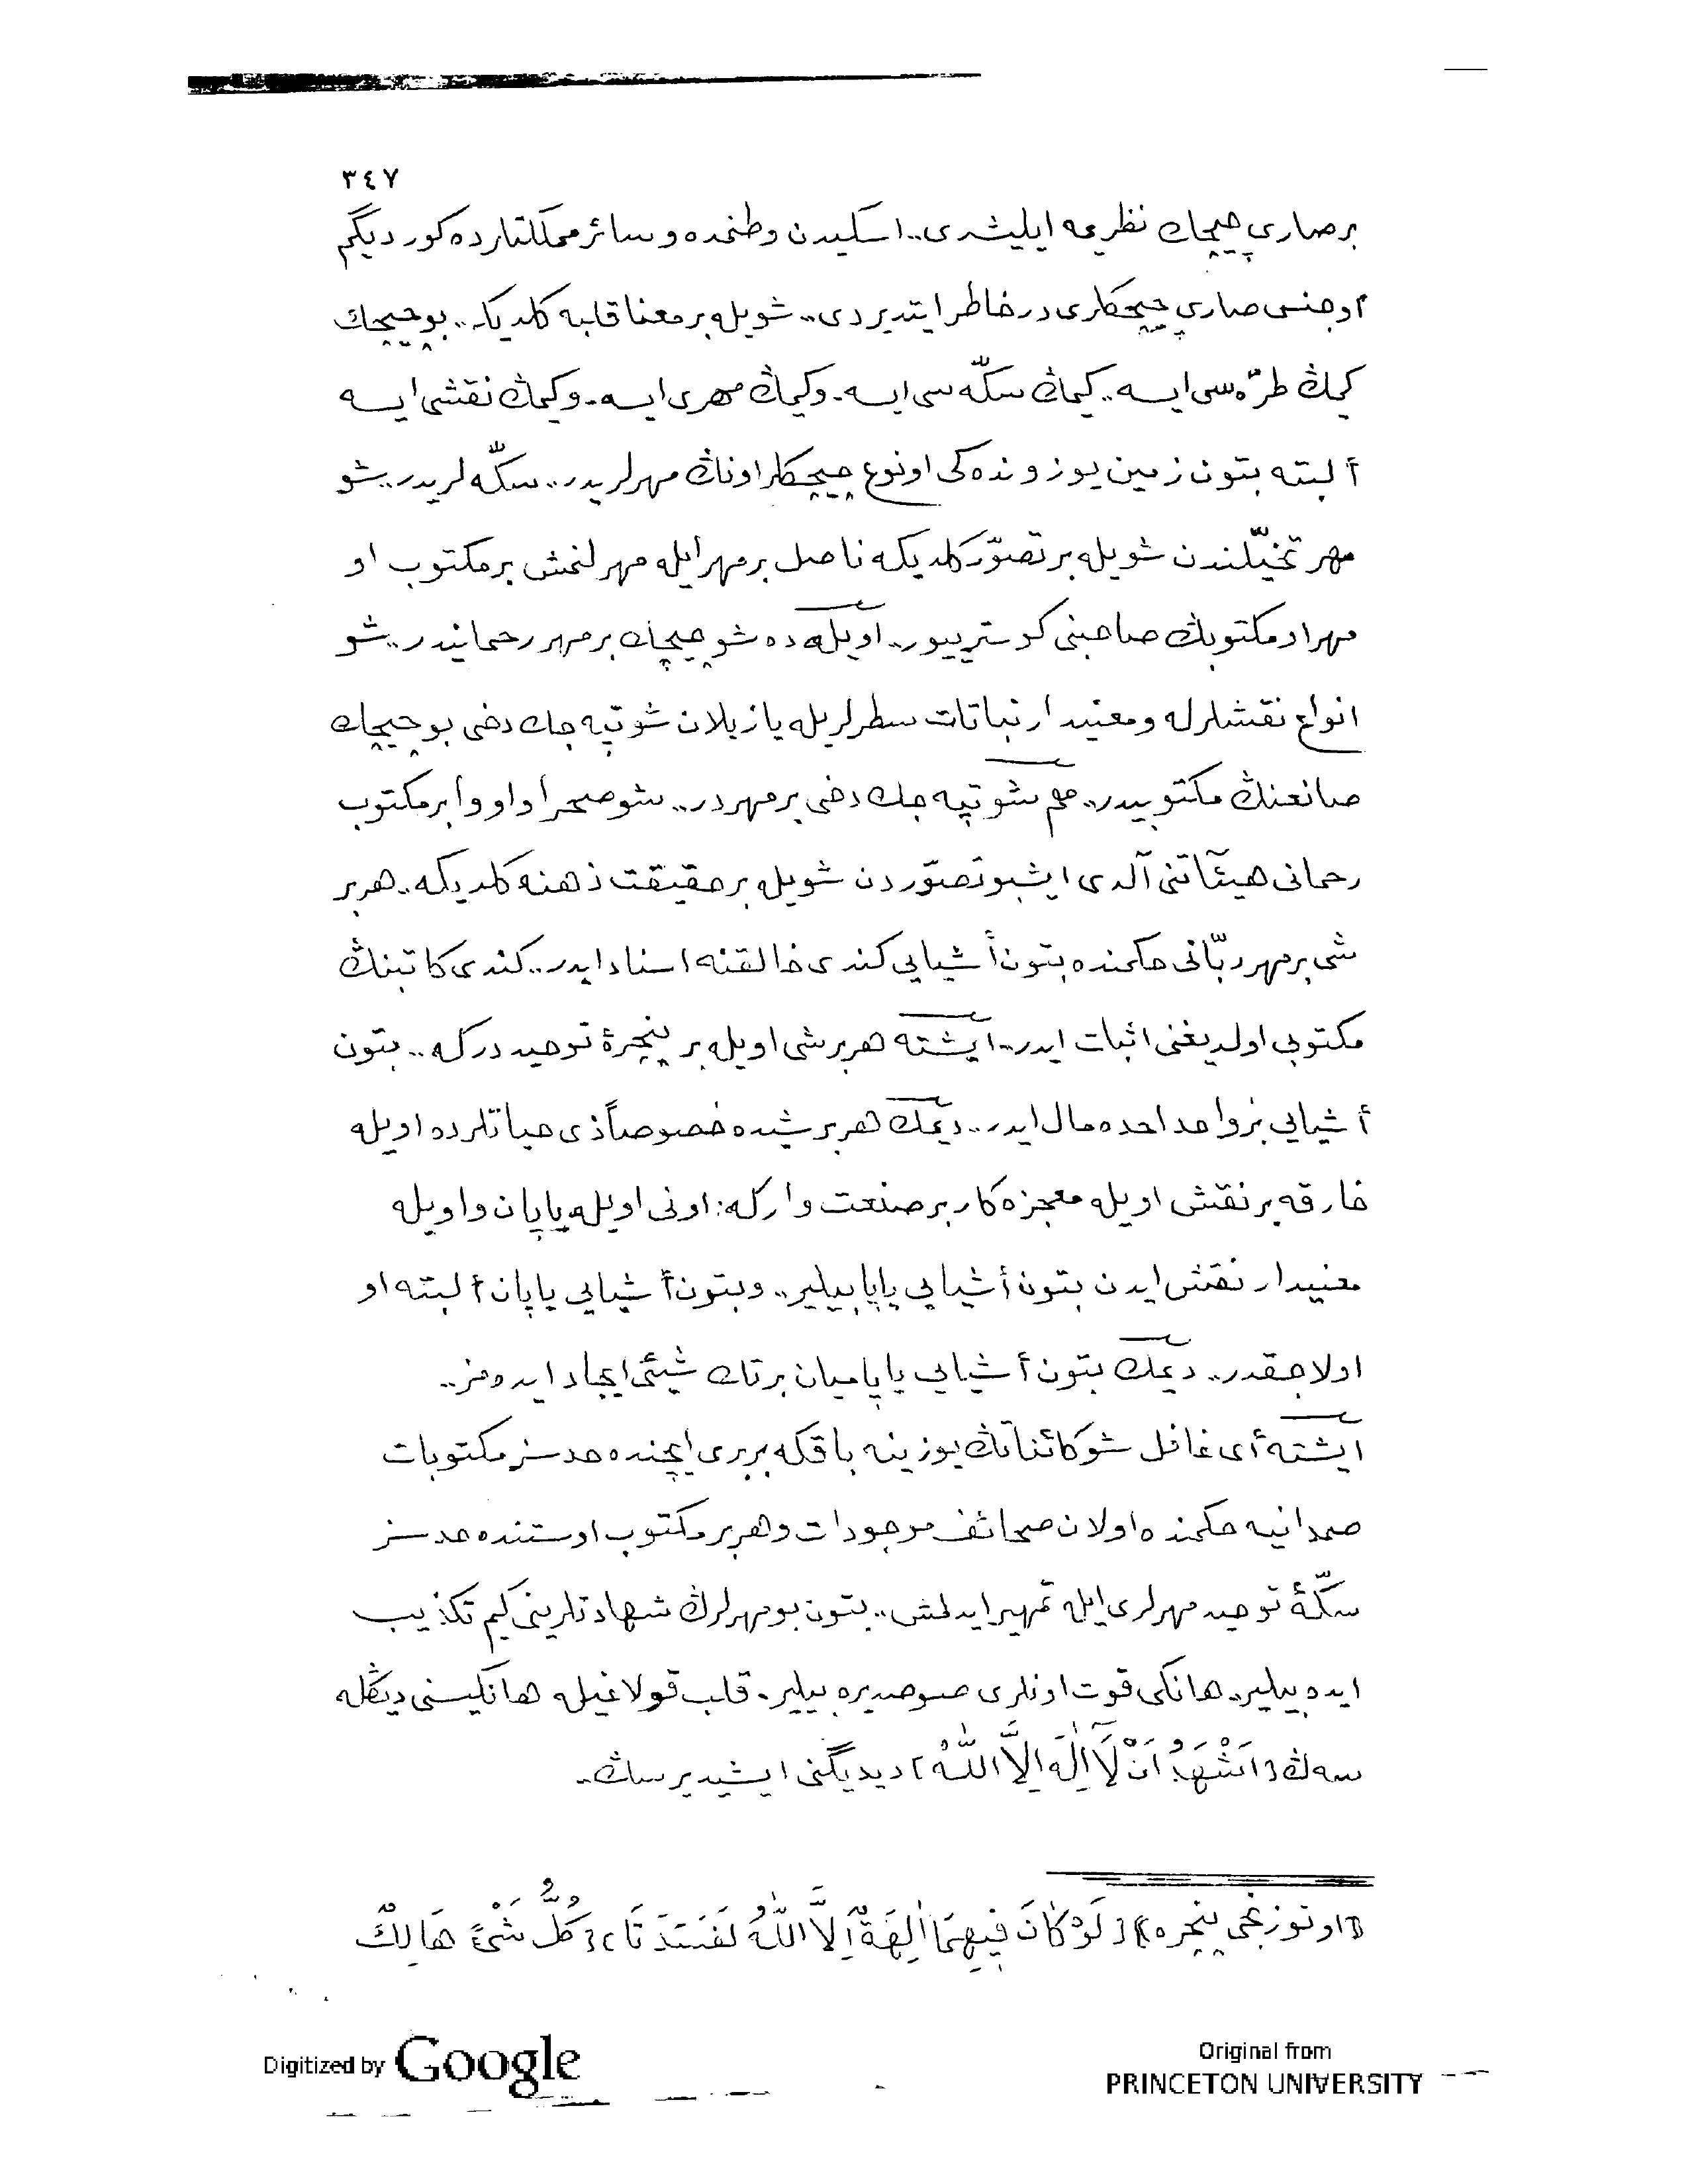 ٣٤٧
بر صاری چیچك نظریمه ایلیشدی.. اسكیدن وطنمده و سائر مملكتلرده كوردیگم
او جنس صاری چیچكلری در خاطر ایتدیردی.. شویله بر معنا قلبه كلدیكه.. بو چیچك
كیمك طرّه سی ایسه.. كیمك سكّه سی ایسه. و كیمك مهری ایسه. و كیمك نقشی ایسه
ألبته بتون زمین یوزونده كی او نوع چیچكلر اونك مهرلریدر.. سكّه لریدر.. شو
مهر تخیّلندن شویله بر تصوّر كلدیكه ناصل بر مهر ایله مهرلنمش بر مكتوب او
مهر او مكتوبك صاحبنی كوستریيور.. اویله ده شو چیچك بر مهر رحمانیدر.. شو
انواع نقشلرله و معنیدار نباتات سطرلریله یازیلان شو تپه جك دخی بو چیچك
صانعنڭ مكتوبیدر.. هم شو تپه جك دخی بر مهردر.. شو صحرا و اووا بر مكتوب
رحمانی هیئآتنی آلدی ایشبو تصوّردن شویله بر حقیقت ذهنه كلدیكه.. هر بر
شی بر مهر ربّانی حكمنده بتون أشیایی كندی خالقنه اسناد ایدر.. كندی كاتبنڭ
مكتوبی اولدیغنی اثبات ایدر.. ایشته هر بر شی اویله بر پنجرۀ توحیددركه.. بتون
أشیایی بر واحد احده مال ایدر.. دیمك هر بر شیده خصوصاً ذی حیاتلرده اویله
خارقه بر نقش اویله معجزه كار بر صنعت واركه: اونی اویله یاپان و اویله
معنیدار نقش ایدن بتون أشیایی یاپابیلیر.. و بتون أشیایی یاپان ألبته او
اولاجقدر.. دیمك بتون أشیایی یاپامیان بر تك شیئی ایجاد ایده مز..
ایشته أی غافل شو كائناتڭ یوزینه باقكه بربری ایچنده حدسز مكتوبات
صمدانیه حكمنده اولان صحائف موجودات و هر بر مكتوب اوستنده حدسز
سكّۀ توحید مهرلری ایله تمهیر ایدلمش.. بتون بو مهرلرڭ شهادتلرینی كیم تكذیب
ایده بیلیر.. هانكی قوت اونلری صوصدیره بیلیر. قلب قولاغیله هانكیسنی دیڭله
سه ڭ ﴿اَشْهَدُ اَنْ لَآ اِلٰهَ اِلَّا اللّٰهُ﴾ دیدیگنی ایشیدیرسڭ..
﴿اوتوزنجی پنجره﴾ ﴿لَوْ كَانَ فِيهِمَٓا اٰلِهَةٌ اِلَّا اللّٰهُ لَفَسَدَتَا﴾ ﴿كُلُّ شَىْءٍ هَالِكٌ
Digitized by Google
Original from
PRINCETON UNIVERSITY